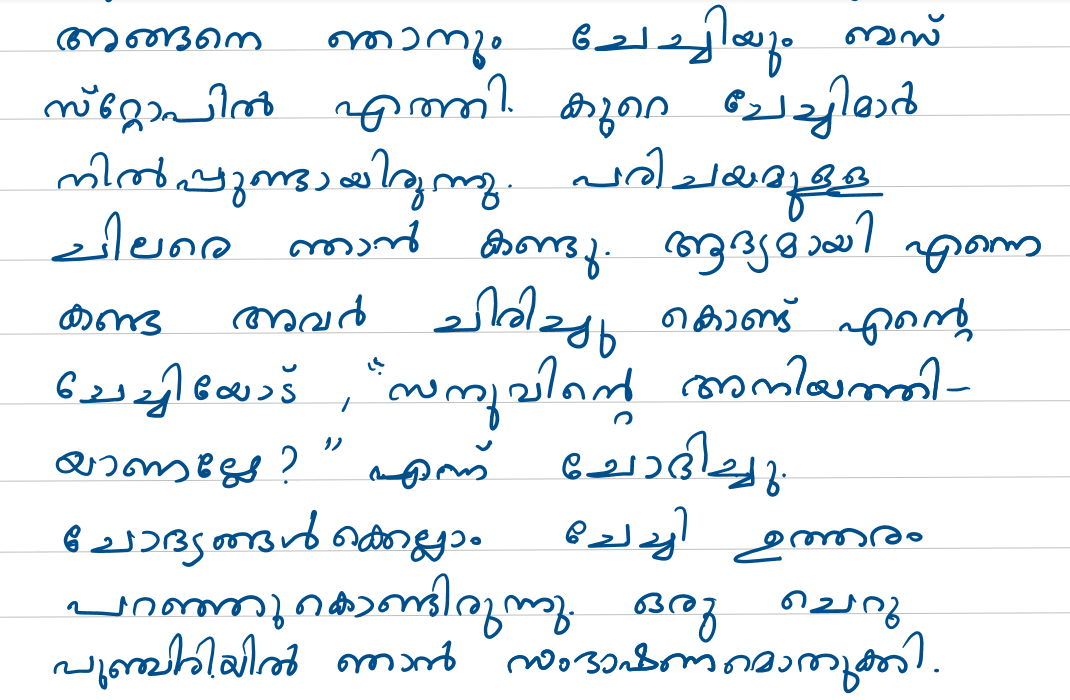 അങ്ങനെ ഞാനും ചേച്ചിയും ബസ്
സ്റ്റോപിൽ എത്തി. കുറെ ചേച്ചിമാർ
നിൽപ്പുണ്ടായിരുന്നു. പരിചയമുള്ള
ചിലരെ ഞാൻ കണ്ടു. ആദ്യമായി എന്നെ
കണ്ട അവർ ചിരിച്ചു കൊണ്ട് എന്റെ
ചേച്ചിയോട്, "സനുവിന്റെ അനിയത്തി-
യാണല്ലേ?" എന്ന് ചോദിച്ചു.
ചോദ്യങ്ങൾക്കെല്ലാം ചേച്ചി ഉത്തരം
പറഞ്ഞുകൊണ്ടിരുന്നു. ഒരു ചെറു
പുഞ്ചിരിയിൽ ഞാൻ സംഭാഷണമൊതുക്കി.